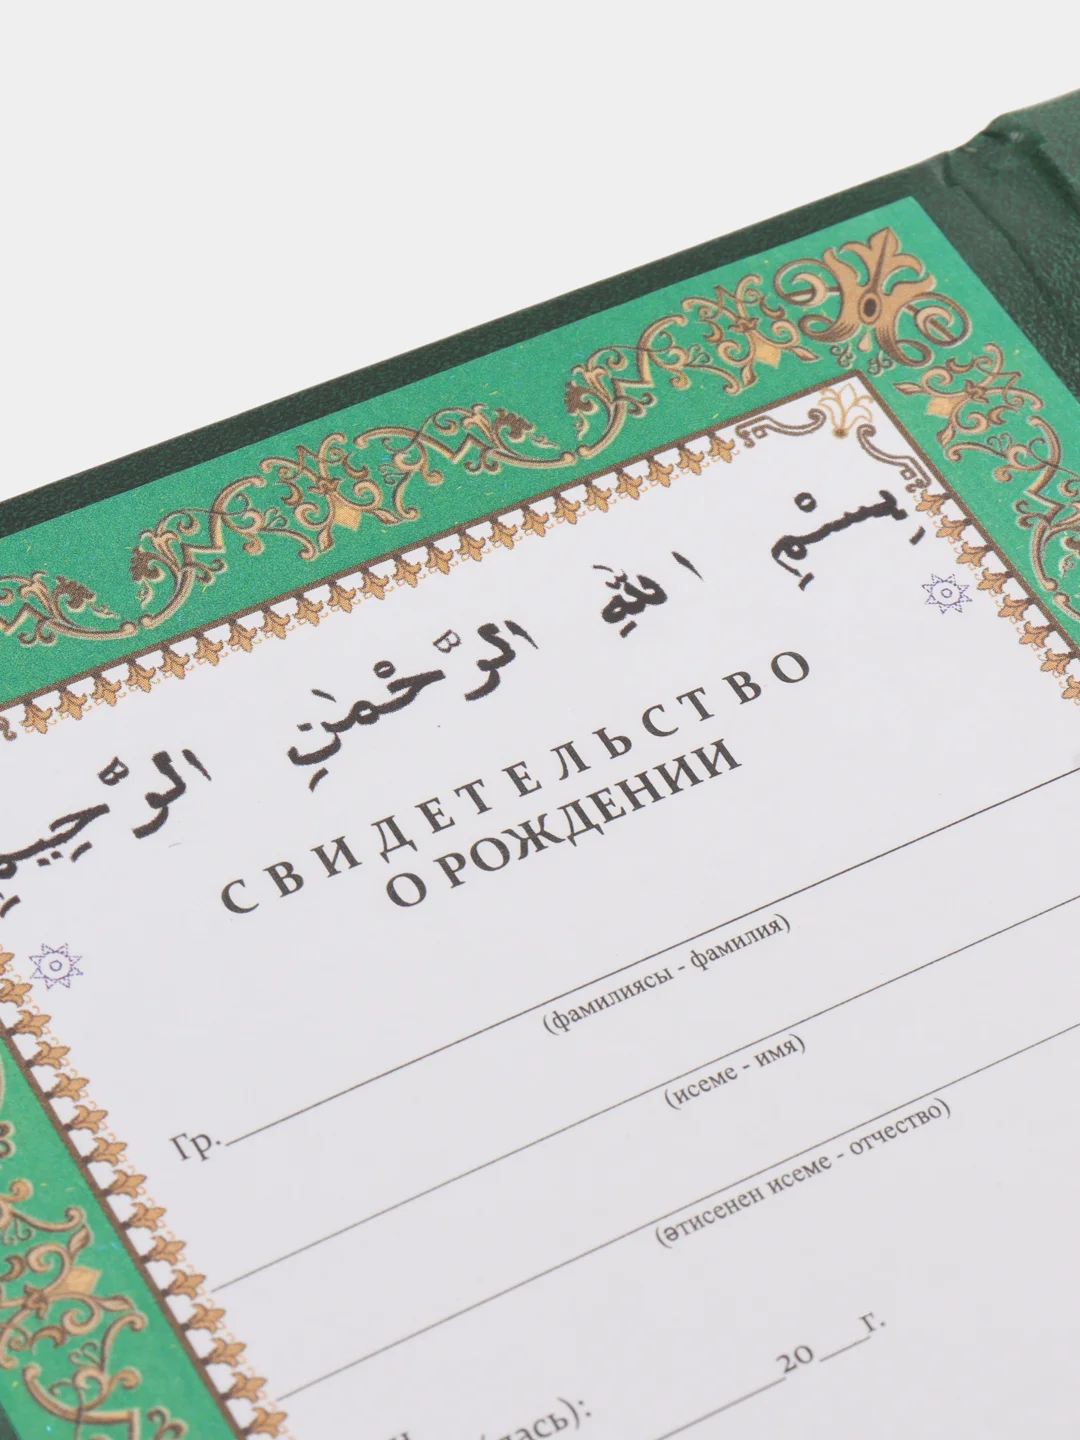 بِسْمِ اللهِ الرَّحْمٰنِ الرَّحِيمِ
СВИДЕТЕЛЬСТВО
О РОЖДЕНИИ
Гр.
(фамилиясы - фамилия)
(исеме - имя)
(әтисенен исеме - отчество)
20 г.